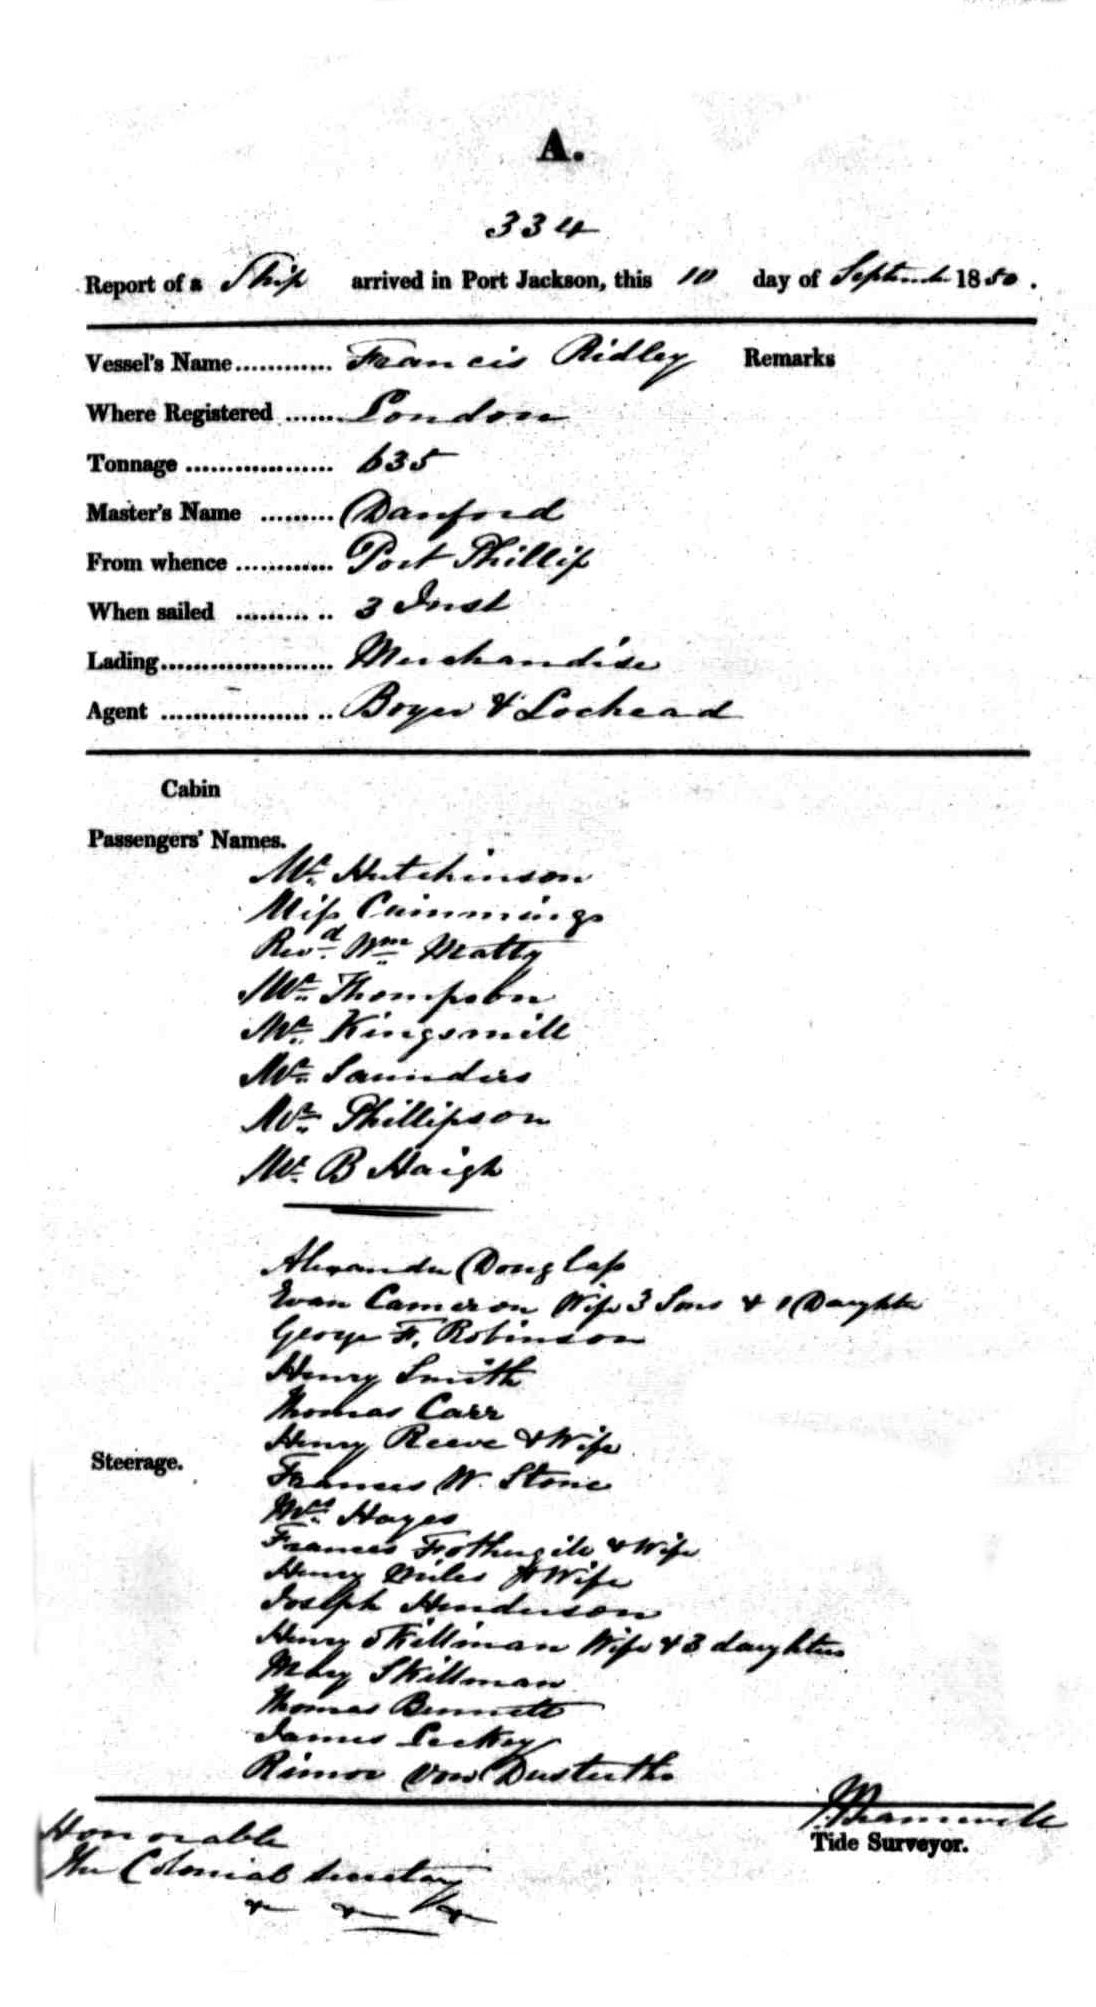 A.
334
Report of a Ship arrived in Port Jackson, this 10 day of September 1850.
Vessel's Name ............ Francis Ridley Remarks
Where Registered ....... London
Tonnage .................. 635
Master's Name ......... Danford
From whence ............ Port Phillip
When sailed ......... .. 3 Inst
Lading..................... Merchandise
Agent .................. .. Boyer & Lochead
Cabin
Passengers' Names.
Mr. Hutchinson
Miss Cummings
Revd. Wm. Matty
Mr. Thompson
Mr. Kingsmill
Mr. Saunders
Mr. Phillipson
Mr. B Haigh
Alexander Douglass
Evan Cameron Wife 3 Sons & 1 Daughter
George F. Robinson
Henry Smith
Thomas Carr
Henry Reeve & Wife
Steerage.
Frances W. Stone
Mrs. Hayes
Frances Fothergile & Wife
Henry Miles & Wife
Joseph Henderson
Henry Skillman Wife & 3 daughters
Mary Skillman
Thomas Bennett
James Leckey
von
Bramwell
Tide Surveyor.
Honorable
The Colonial Secretary
&c &c &c